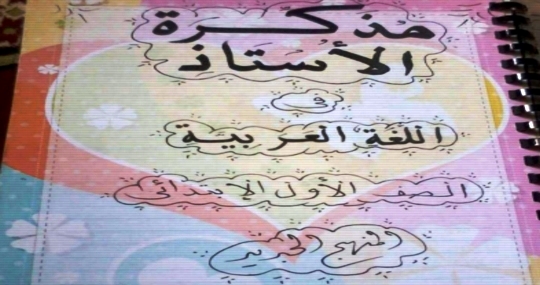 مذكرة
الأستاذ
في
اللغة العربية
الصف الأول الإبتدائى
المنهج الجديد